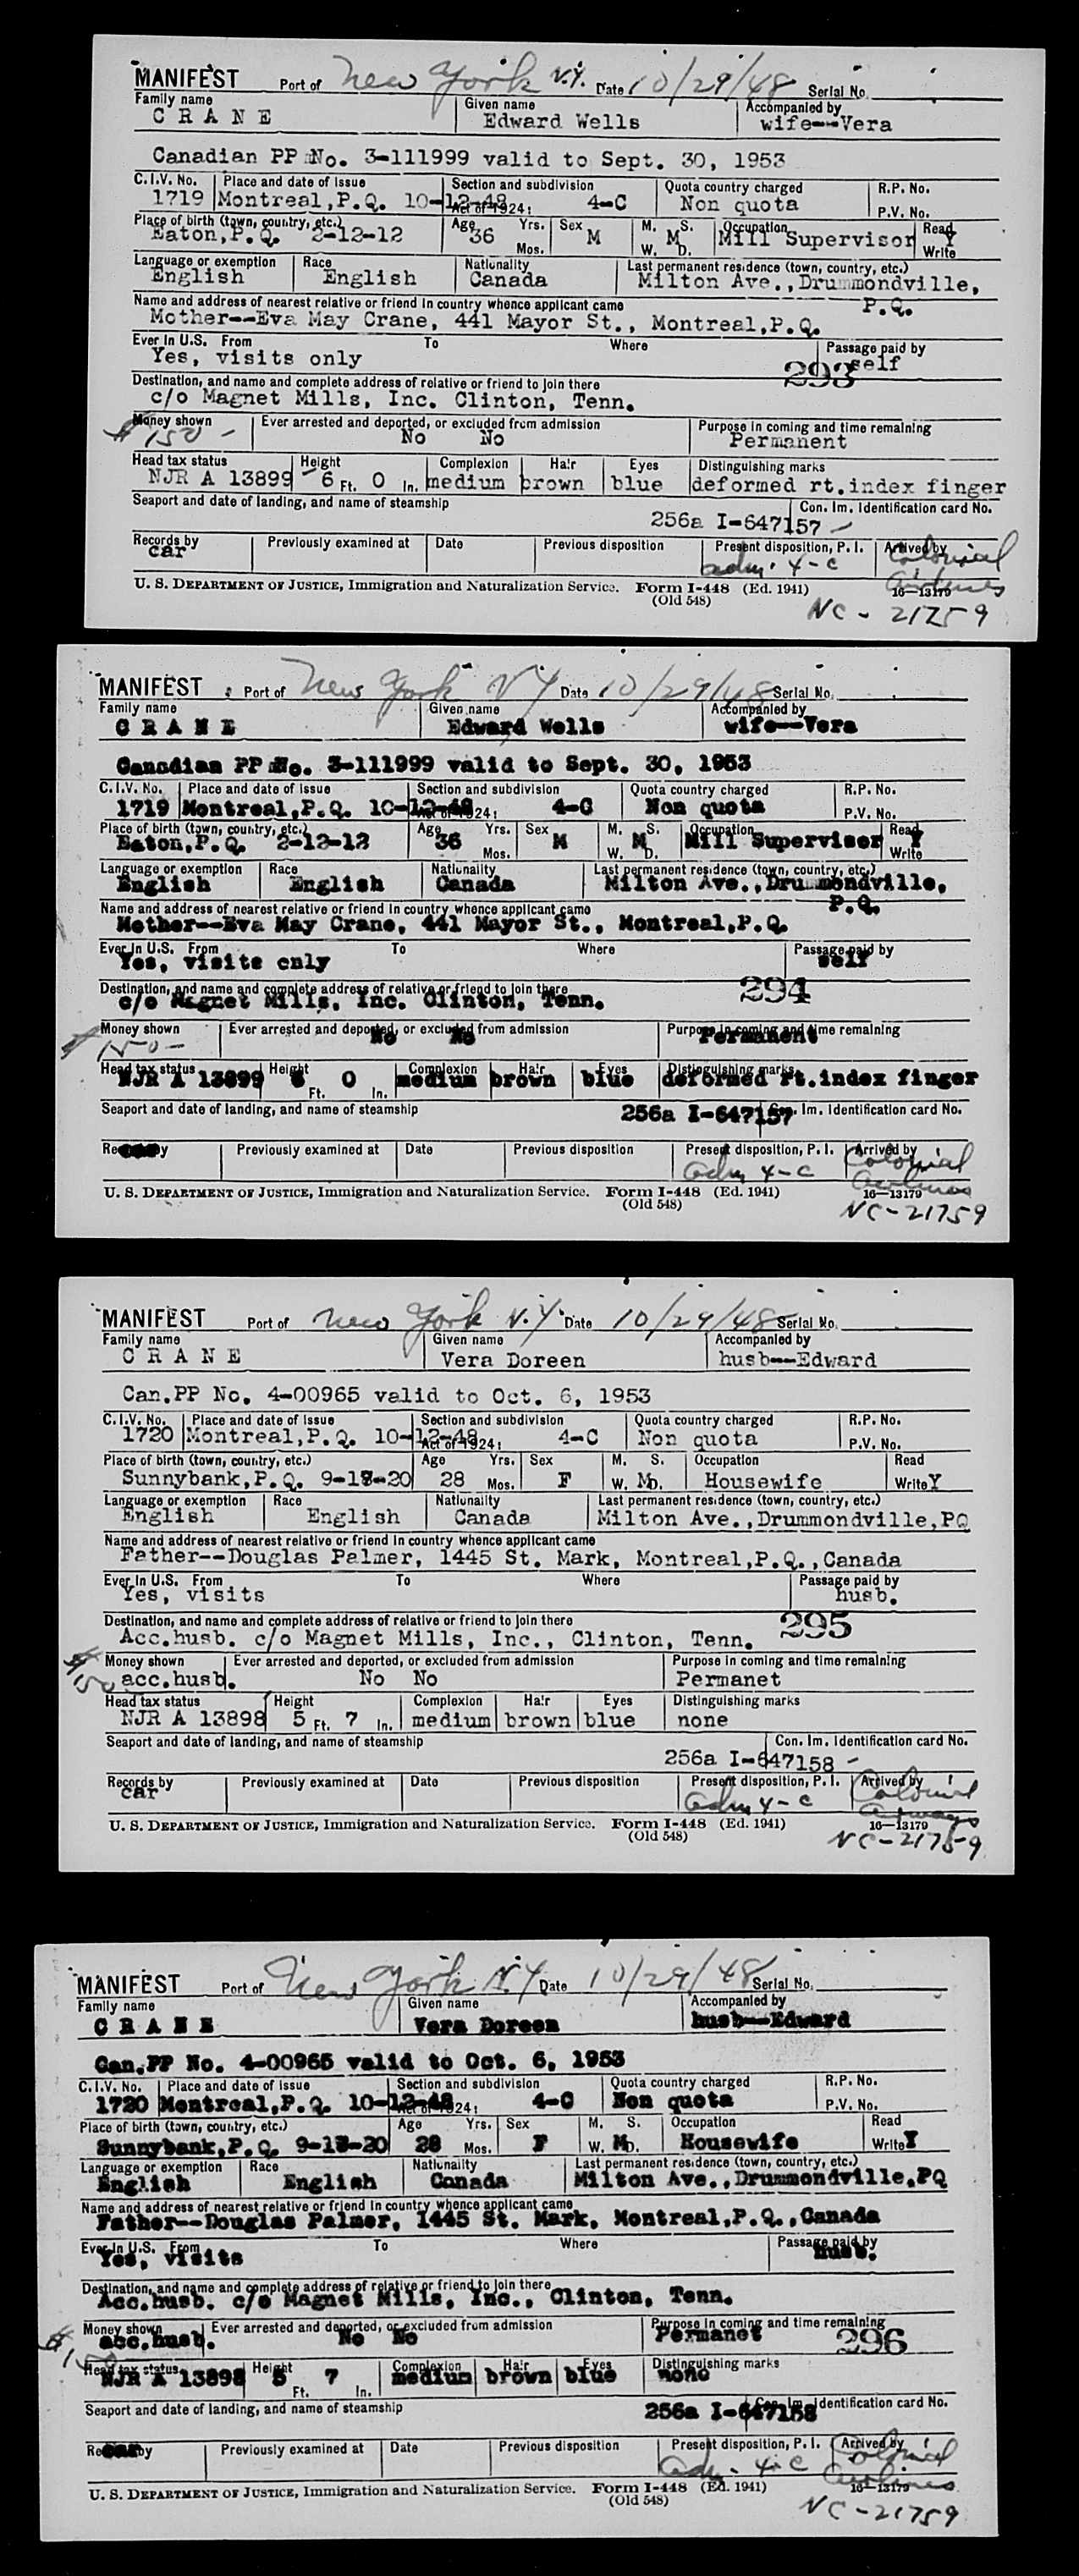 MANIFEST Port of New York N.Y. Date 10/29/48 Serial No.
Family name Given name Accompanied by
CRANE Edward Wells wife--Vera
Canadian PP No. 3-111999 valid to Sept. 30, 1953
C.I.V. No. Place and date of issue Section and subdivision Quota country charged R.P. No.
1719 Montreal,P.Q. 10-12-48 Act of 1924: 4-C Non quota P.V. No.
Place of birth (town, country, etc.) Age Yrs. Sex M. S. Occupation Read
Eaton,P.Q. 2-12-12 36 Mos. M W. M D. Mill Supervisor Y Write
Language or exemption Race Nationality Last permanent residence (town, country, etc.)
English English Canada Milton Ave.,Drummondville, P.Q.
Name and address of nearest relative or friend in country whence applicant came
Mother--Eva May Crane, 441 Mayor St., Montreal,P.Q.
Ever in U.S. From To Where Passage paid by
Yes, visits only 293 self
Destination, and name and complete address of relative or friend to join there
c/o Magnet Mills, Inc. Clinton, Tenn.
Money shown Ever arrested and deported, or excluded from admission Purpose in coming and time remaining
$150- No No Permanent
Head tax status Height Complexion Hair Eyes Distinguishing marks
NJR A 13899 6 Ft. 0 In. medium brown blue deformed rt.index finger
Seaport and date of landing, and name of steamship Con. Im. Identification card No.
256a I-647157
Records by Previously examined at Date Previous disposition Present disposition, P. I. Arrived by
car adm. 4-C Colonial Airlines
U. S. DEPARTMENT OF JUSTICE, Immigration and Naturalization Service. Form I-448 (Ed. 1941) 16—13179
(Old 548) NC-21759
MANIFEST Port of New York NY Date 10/29/48 Serial No.
Family name Given name Accompanied by
CRANE Edward Wells wife--Vera
Canadian PP No. 3-111999 valid to Sept. 30, 1953
C.I.V. No. Place and date of issue Section and subdivision Quota country charged R.P. No.
1719 Montreal,P.Q. 10-12-48 Act of 1924: 4-C Non quota P.V. No.
Place of birth (town, country, etc.) Age Yrs. Sex M. S. Occupation Read
Eaton,P.Q. 2-12-12 36 Mos. M W. M D. Mill Supervisor Y Write
Language or exemption Race Nationality Last permanent residence (town, country, etc.)
English English Canada Milton Ave.,Drummondville, P.Q.
Name and address of nearest relative or friend in country whence applicant came
Mother--Eva May Crane, 441 Mayor St., Montreal,P.Q.
Ever in U.S. From To Where Passage paid by
Yes, visits only self
294
Destination, and name and complete address of relative or friend to join there
c/o Magnet Mills, Inc. Clinton, Tenn.
Money shown Ever arrested and deported, or excluded from admission Purpose in coming and time remaining
$150- No No Permanent
Head tax status Height Complexion Hair Eyes Distinguishing marks
NJR A 13899 6 Ft. 0 In. medium brown blue deformed rt.index finger
Seaport and date of landing, and name of steamship Con. Im. Identification card No.
256a I-647157
Records by Previously examined at Date Previous disposition Present disposition, P. I. Arrived by
car adm 4-C Colonial Airlines
U. S. DEPARTMENT OF JUSTICE, Immigration and Naturalization Service. Form I-448 (Ed. 1941) 16—13179
(Old 548) NC-21759
MANIFEST Port of New York N.Y. Date 10/29/48 Serial No.
Family name Given name Accompanied by
CRANE Vera Doreen husb--Edward
Can.PP No. 4-00965 valid to Oct. 6, 1953
C.I.V. No. Place and date of issue Section and subdivision Quota country charged R.P. No.
1720 Montreal,P.Q. 10-12-48 Act of 1924: 4-C Non quota P.V. No.
Place of birth (town, country, etc.) Age Yrs. Sex M. S. Occupation Read
Sunnybank,P.Q. 9-18-20 28 Mos. F W. M D. Housewife Write Y
Language or exemption Race Nationality Last permanent residence (town, country, etc.)
English English Canada Milton Ave.,Drummondville,PQ
Name and address of nearest relative or friend in country whence applicant came
Father--Douglas Palmer, 1445 St. Mark, Montreal,P.Q.,Canada
Ever in U.S. From To Where Passage paid by
Yes, visits husb.
Destination, and name and complete address of relative or friend to join there 295
Acc.husb. c/o Magnet Mills, Inc., Clinton, Tenn.
Money shown Ever arrested and deported, or excluded from admission Purpose in coming and time remaining
$150 acc.husb. No No Permanet
Head tax status Height Complexion Hair Eyes Distinguishing marks
NJR A 13898 5 Ft. 7 In. medium brown blue none
Seaport and date of landing, and name of steamship Con. Im. Identification card No.
256a I-647158
Records by Previously examined at Date Previous disposition Present disposition, P. I. Arrived by
car adm 4-C Colonial Airways
U. S. DEPARTMENT OF JUSTICE, Immigration and Naturalization Service. Form I-448 (Ed. 1941) 16—13179
(Old 548) NC-21759
MANIFEST Port of New York N.Y. Date 10/29/48 Serial No.
Family name Given name Accompanied by
CRANE Vera Doreen husb--Edward
Can.PP No. 4-00965 valid to Oct. 6, 1953
C.I.V. No. Place and date of issue Section and subdivision Quota country charged R.P. No.
1720 Montreal,P.Q. 10-12-48 Act of 1924: 4-C Non quota P.V. No.
Place of birth (town, country, etc.) Age Yrs. Sex M. S. Occupation Read
Sunnybank,P.Q. 9-18-20 28 Mos. F W. M D. Housewife Write Y
Language or exemption Race Nationality Last permanent residence (town, country, etc.)
English English Canada Milton Ave.,Drummondville,PQ
Name and address of nearest relative or friend in country whence applicant came
Father--Douglas Palmer, 1445 St. Mark, Montreal,P.Q.,Canada
Ever in U.S. From To Where Passage paid by
Yes, visits husb.
Destination, and name and complete address of relative or friend to join there
Acc.husb. c/o Magnet Mills, Inc., Clinton, Tenn.
Money shown Ever arrested and deported, or excluded from admission Purpose in coming and time remaining
$150 acc.husb. No No Permanet 296
Head tax status Height Complexion Hair Eyes Distinguishing marks
NJR A 13898 5 Ft. 7 In. medium brown blue none
Seaport and date of landing, and name of steamship Con. Im. Identification card No.
256a I-647158
Records by Previously examined at Date Previous disposition Present disposition, P. I. Arrived by
car adm. 4-C Colonial Airlines
U. S. DEPARTMENT OF JUSTICE, Immigration and Naturalization Service. Form I-448 (Ed. 1941) 16—13179
(Old 548) NC-21759